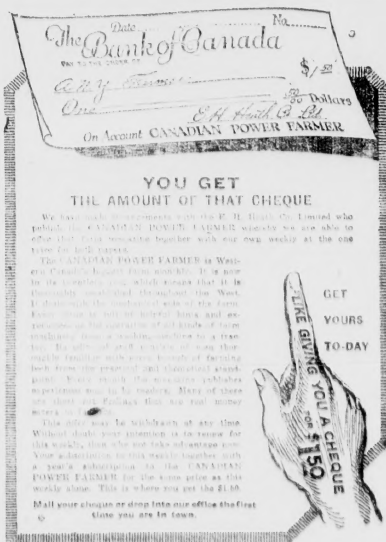 Date No.
The Bank of Canada
PAY TO THE ORDER OF
Any Farmer $1.50
One 50/00 Dollars
E. H. Heath Co Ltd
On Account CANADIAN POWER FARMER
YOU GET
THE AMOUNT OF THAT CHEQUE
We have made arrangements with the E. H. Heath Co. Limited who
publish the CANADIAN POWER FARMER whereby we are able to
offer that farm magazine together with our own weekly at the one
price for both papers.
The CANADIAN POWER FARMER is West-
ern Canada's farm monthly. It is now
in its year which means that it is
thoroughly established throughout the West.
It deals with the mechanical side of the farm.
Every issue is full of helpful hints and ex-
on the operation of all kinds of farm
machinery, from a combine to a trac-
tor. familiar with every branch of farming
both from the practical and theoretical stand-
point. Every month the magazine publishes
experiences sent in by readers. Many of these
are short
This offer may be withdrawn at any time.
Without doubt your intention is to renew for
this weekly, then why not take advantage now.
Your subscription to this weekly together with
a year's subscription to the CANADIAN
POWER FARMER for the same price as this
weekly alone. This is where you get the $1.50.
Mail your cheque or drop into our office the first
time you are in town.
GET
YOURS
TO-DAY
LIKE GIVING YOU A CHEQUE
FOR $1.50